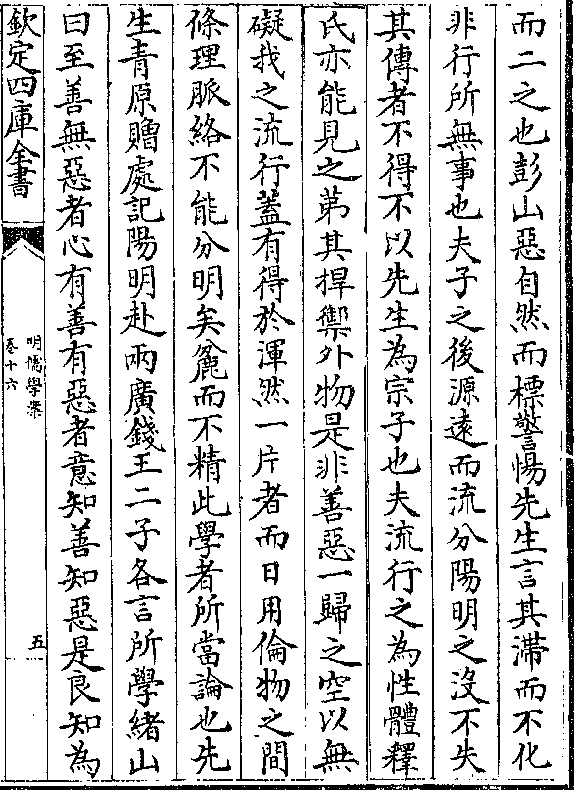 而二之也彭山惡自然而標警惕先生言其滯而不化
非行所無事也夫子之後源遠而流分陽明之沒不失
其傳者不得不以先生為宗子也夫流行之為性體釋
氏亦能見之第其捍禦外物是非善惡一歸之空以無
礙我之流行蓋有得於渾然一片者而日用倫物之間
條理脈絡不能分明矣麄而不精此學者所當論也先
生青原贈處記陽明赴兩廣錢王二子各言所學緒山
曰至善無惡者心有善有惡者意知善知惡是良知為
欽定四庫全書
明儒學案
卷十六
五